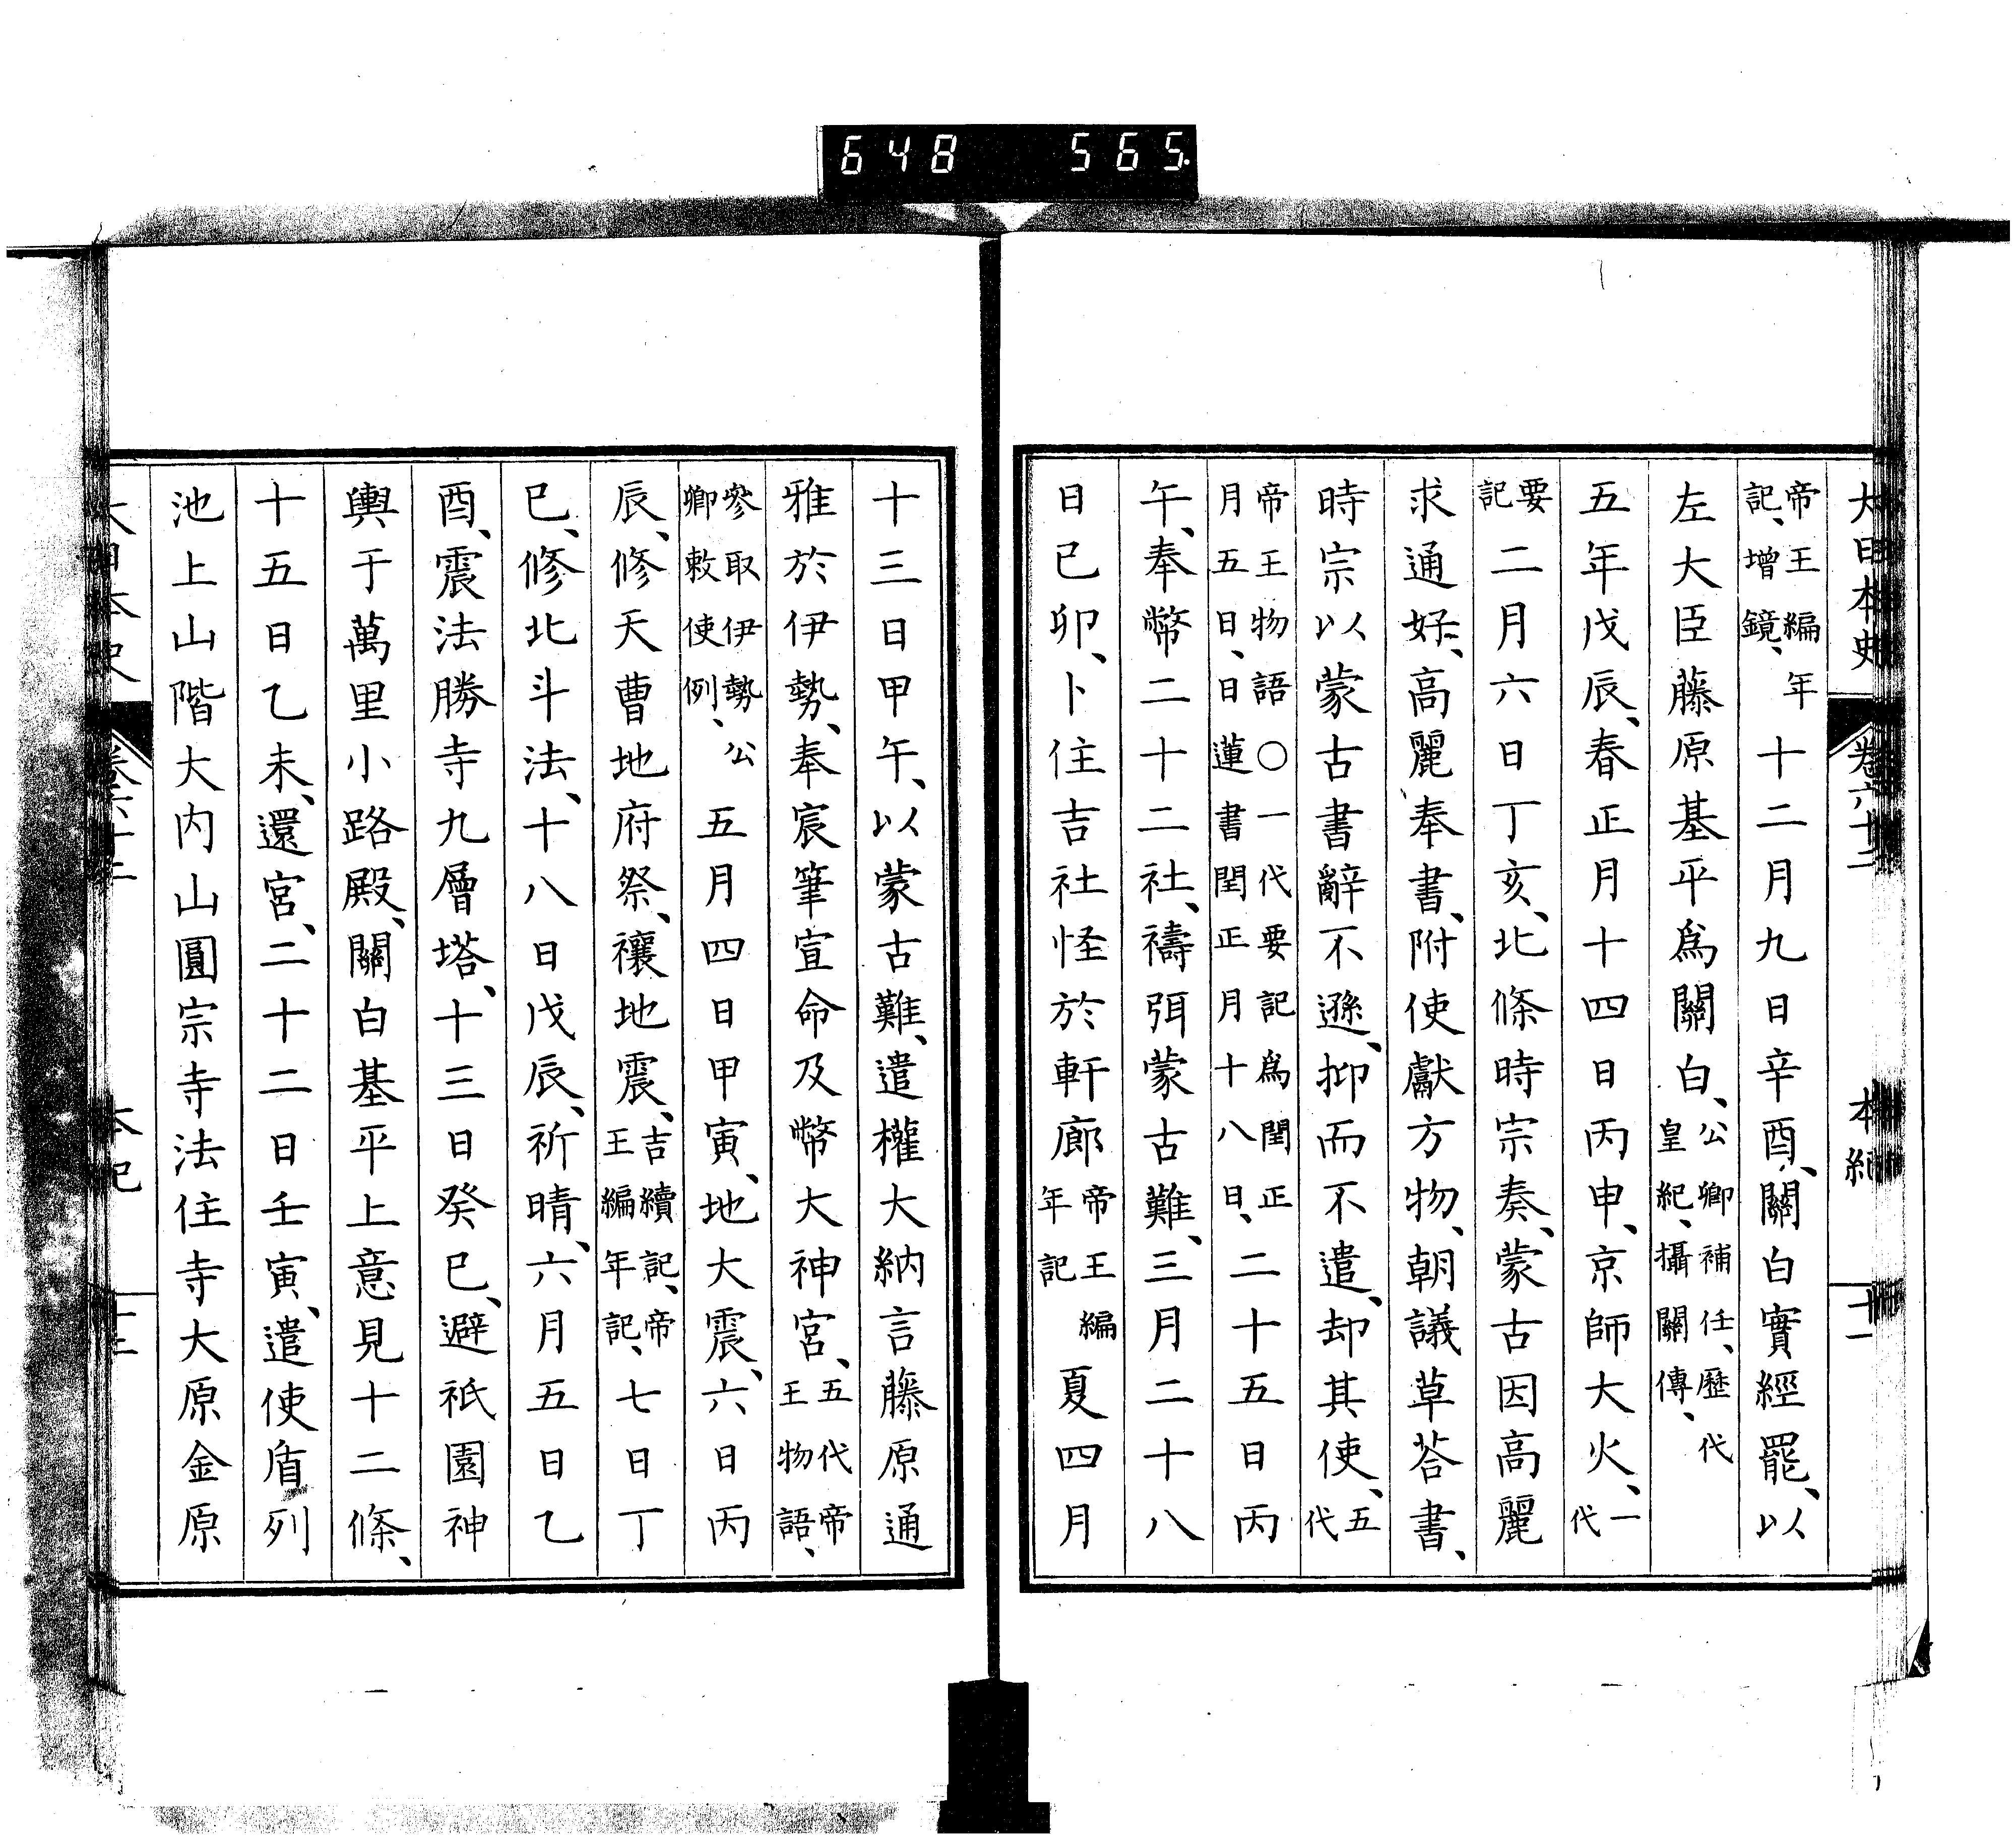 648 565
大日本史 卷六十二 本紀 十一
帝王編年記、增鏡、十二月九日辛酉、關白實經罷、以
左大臣藤原基平爲關白、公卿補任、歷代皇紀、攝關傳、
五年戊辰、春正月十四日丙申、京師大火、一代
要記二月六日丁亥、北條時宗奏、蒙古因高麗
求通好、高麗奉書、附使獻方物、朝議草荅書、
時宗以蒙古書辭不遜、抑而不遣、却其使、五代
帝王物語○一代要記爲閏正月五日、日蓮書閏正月十八日、二十五日丙
午、奉幣二十二社、禱弭蒙古難、三月二十八
日己卯、卜住吉社怪於軒廊帝王編年記夏四月
十三日甲午、以蒙古難、遣權大納言藤原通
雅於伊勢、奉宸筆宣命及幣大神宮、五代帝王物語、
參取伊勢公卿敕使例、五月四日甲寅、地大震、六日丙
辰、修天曹地府祭、禳地震、吉續記、帝王編年記、七日丁
巳、修北斗法、十八日戊辰、祈晴、六月五日乙
酉、震法勝寺九層塔、十三日癸巳、避祇園神
輿于萬里小路殿、關白基平上意見十二條、
十五日乙未、還宮、二十二日壬寅、遣使盾列
池上山階大內山圓宗寺法住寺大原金原
大日本史 卷六十二 本紀